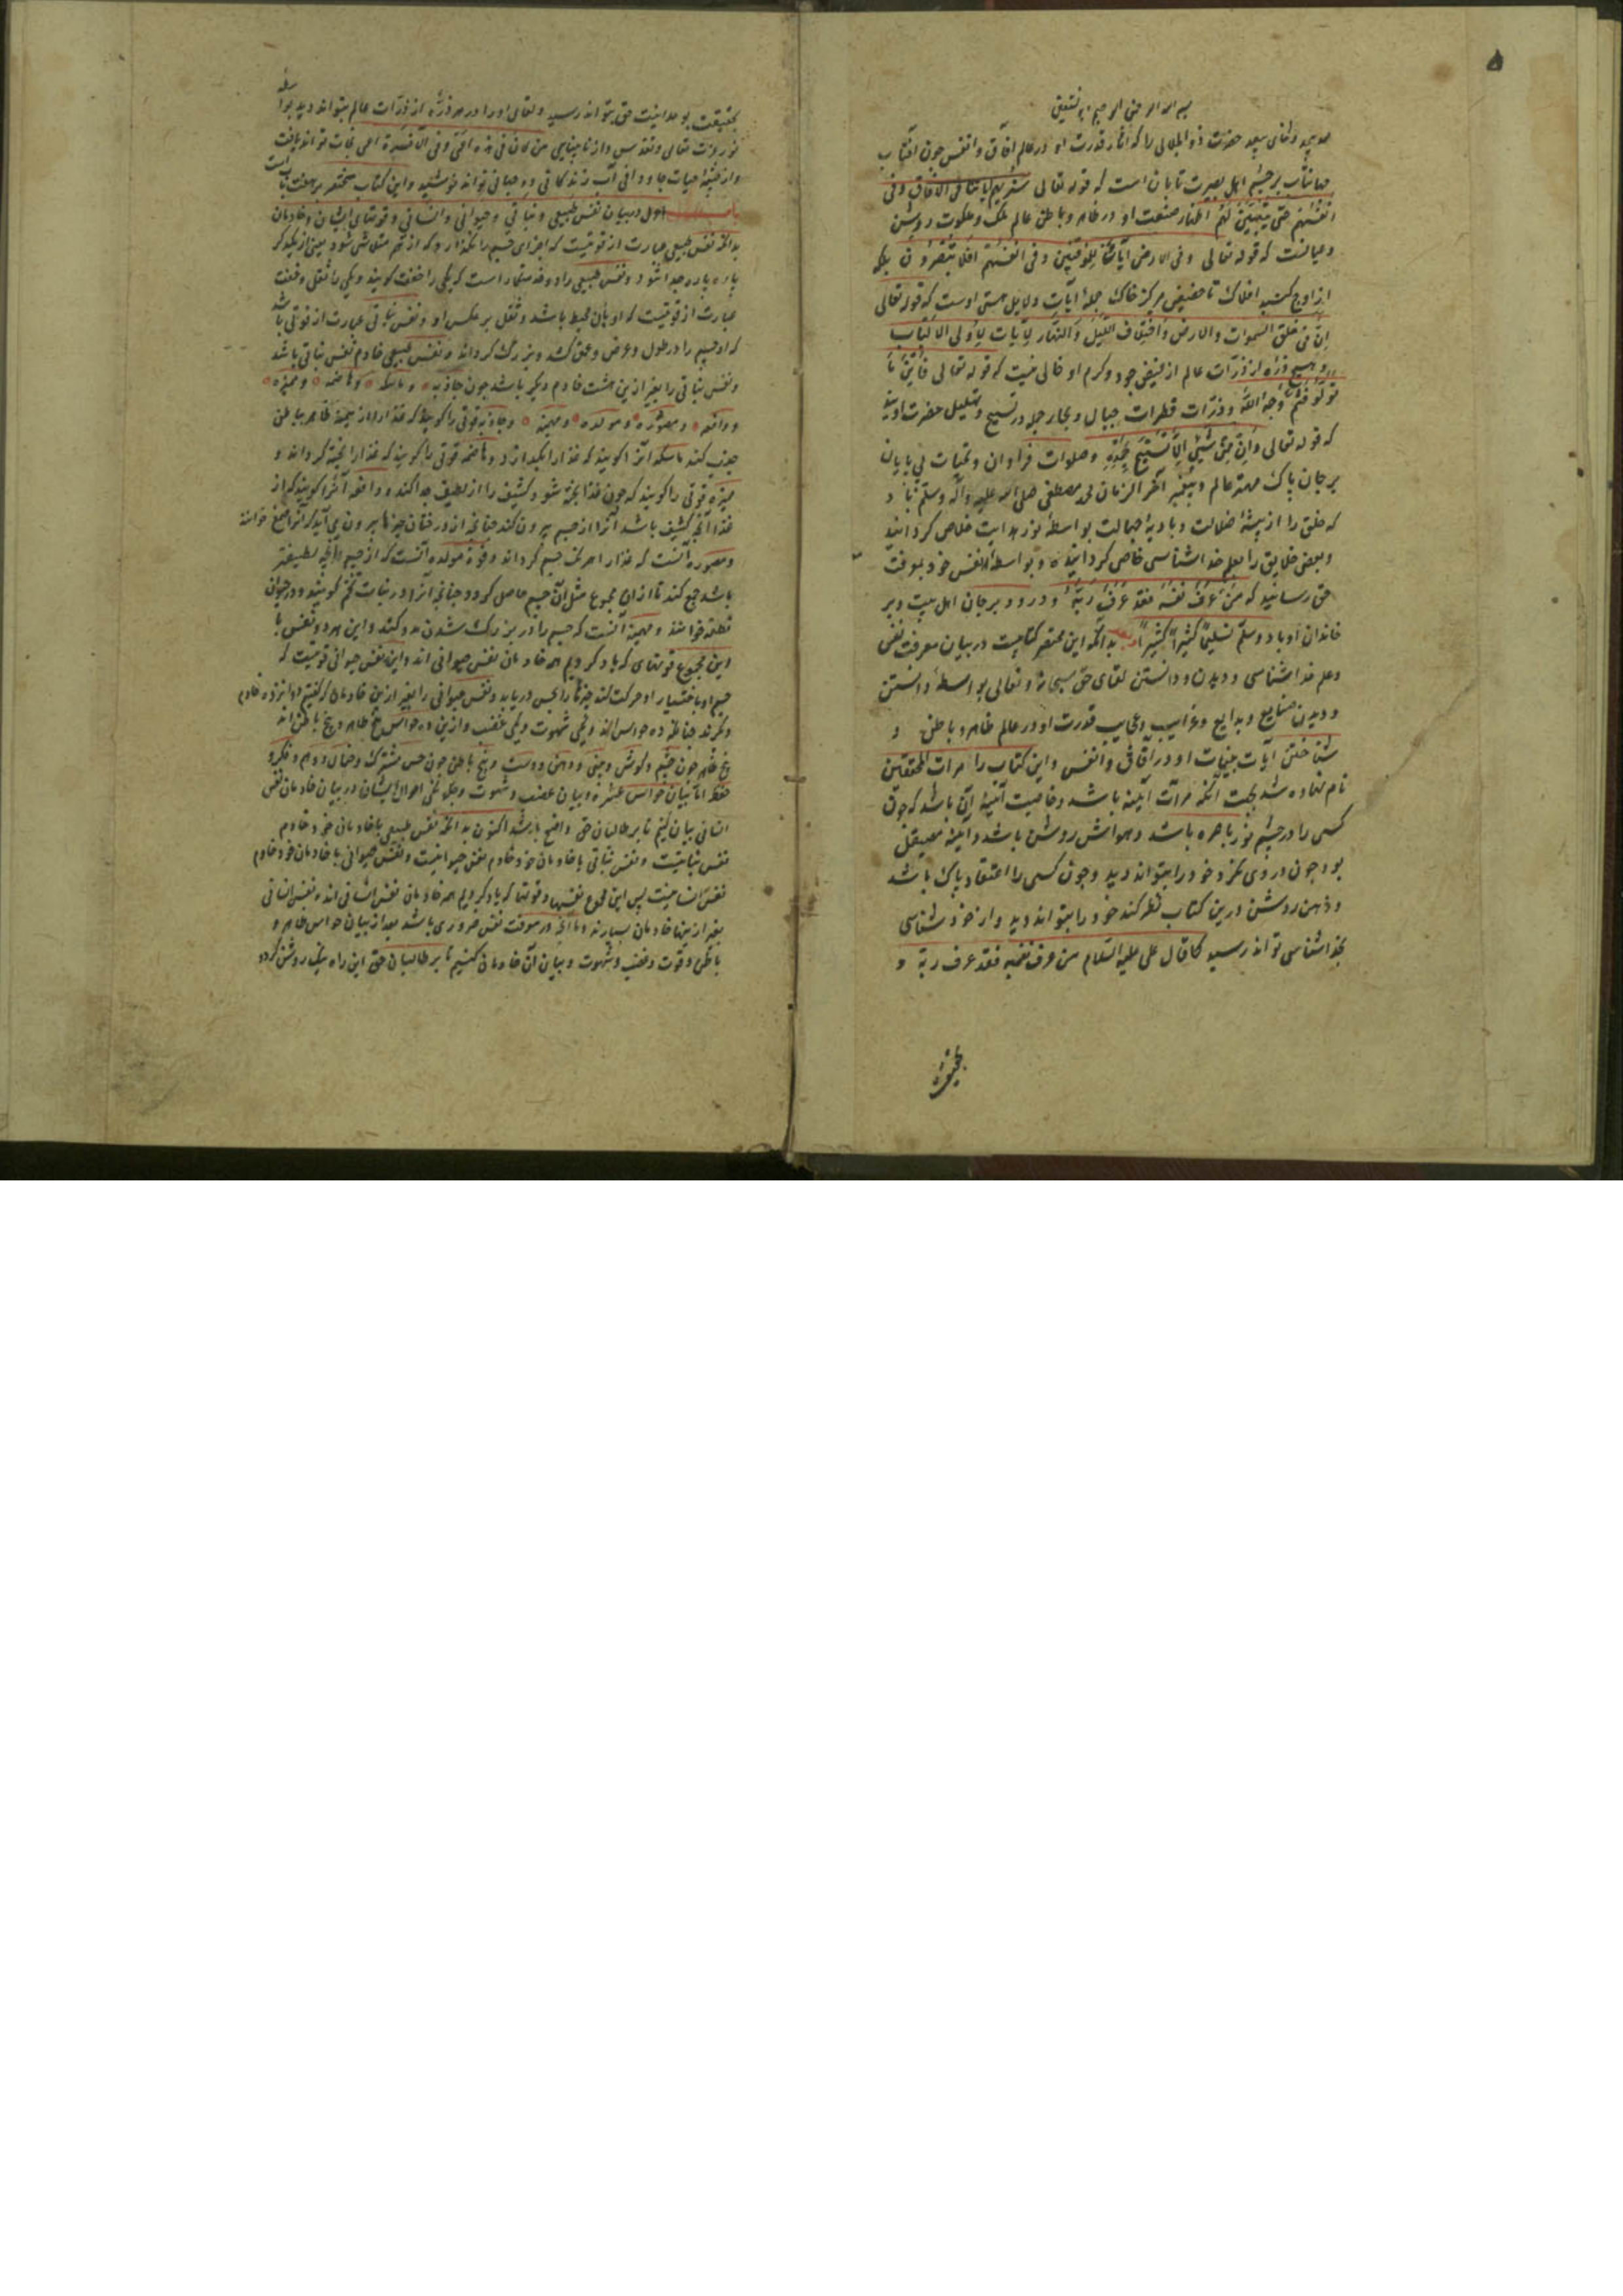 ۵
بسم الله الرحمن الرحیم وبه نستعین
حمد بیحد و ثنای بیعد حضرت ذو الجلالی را که آثار قدرت او در عالم آفاق و انفس چون آفتاب
جهانتاب بر چشم اهل بصیرت تابان است که قوله تعالی سنریهم آیاتنا فی الآفاق وفی
انفسهم حتی یتبین لهم اظهار صنعت او در ظاهر و باطن عالم ملک و ملکوت روشن
و عیانست که قوله تعالی وفی الارض آیات للموقنین وفی انفسهم افلا تبصرون بلکه
از اوج کنبد افلاک تا حضیض مرکز خاک جمله آیات و دلایل هستی اوست که قوله تعالی
ان فی خلق السموات والارض واختلاف اللیل والنهار لآیات لاولی الالباب
و هیچ ذره از ذرات عالم از فیض جود و کرم او خالی نیست که قوله تعالی فاینما
تولوا فثم وجه الله و ذرات قطرات جبال و بحار جمله در تسبیح و تهلیل حضرت اویند
که قوله تعالی وان من شیئ الا یسبح بحمده و صلوات فراوان و تحیات بی پایان
بر جان پاک مهتر عالم و پیغمبر آخر الزمان محمد مصطفی صلی الله علیه وآله وسلم باد
که خلق را از بیشهٔ ضلالت و بادیهٔ جهالت بواسطهٔ نور هدایت خلاص کردانید
و بعضی خلایق را بعلم خداشناسی خاص کردانیده و بواسطهٔ نفس خود بمعرفت
حق رسانید که من عرف نفسه فقد عرف ربه و درود بر جان اهل بیت و بر
خاندان او باد وسلم تسلیما کثیرا کثیرا بدانکه این مختصر کتابیست در بیان معرفت نفس
و علم خداشناسی و دیدن و دانستن لقای حق سبحانه و تعالی بواسطهٔ دانستن
و دیدن صنایع و بدایع و غرایب و عجایب قدرت او در عالم ظاهر و باطن و
شناختن آیات بینات او در آفاق و انفس و این کتاب را مرات المحققین
نام نهاده شد بجهت آنکه مرآت آیینه باشد و خاصیت آیینهٔ آن باشد که چون
کسی را در چشم نور باصره باشد و هواش روشن باشد و آیینه مصیقل
بود چون در وی نکرد خود را بتواند دید و چون کسی را اعتقاد پاک باشد
و ذهن روشن درین کتاب نظر کند خود را بتواند دید و از خود شناسی
بخداشناسی تواند رسید کما قال علی علیه السلام من عرف نفسه فقد عرف ربه و
بحقیقت
بحقیقت بوحدانیت حق بتواند رسید و لقای او را در هر ذره از ذرات عالم بتواند دید بواسطه
نور عزت تعالی و تقدس و از نابینایی من کان فی هذه اعمی وفی الآخرة اعمی نجات تواند یافت
و از چشمهٔ حیات جاودانی آب زندکانی و حیاتی تواند نوشید و این کتاب مختصر بر هفت باب است
باب اول در بیان نفس طبیعی و نباتی و حیوانی و انسانی و قوتهای ایشان و خادمان
بدانکه نفس طبیعی عبارت از قوتیست که اجزای جسم را نکذارد که از هم متلاشی شود یعنی از یکدیکر
پاره پاره جدا شود و نفس طبیعی را دو خدمتکار است که یکی را خفت کویند و یکی را ثقل و خفت
عبارت از قوتیست که او بآن محیط باشد و ثقل بر عکس او و نفس نباتی عبارت از قوتی باشد
که او جسم را در طول و عرض و عمق کشد و بزرک کرداند و نفس طبیعی خادم نفس نباتی باشد
و نفس نباتی را بغیر ازین هشت خادم دیکر باشد چون جاذبه و ماسکه و هاضمه و ممیزه
و دافعه و مصوره و مولده و مهیمنه و جاذبه قوتی را کویند که غذا را از جسم ظاهر بباطن
جذب کند ماسکه آنرا کویند که غذا را نکهدارد و هاضمه قوتی را کویند که غذا را پخته کرداند و
ممیزه قوتی را کویند که چون غذا پخته شود کثیف را از لطیف جدا کند و دافعه آنرا کویند که از
غذا آنچه کثیف باشد آنرا از جسم بیرون کند چنانچه از درختان چیزها بیرون می آید که آنرا صمغ خوانند
و مصوره آنست که غذا را همرنک جسم کرداند و قوة مولده آنست که از جسم آنچه لطیفتر
باشد جمع کند تا از آن مجموع مثل آن جسم حاصل کردد چنانچه آنرا در نبات تخم کویند و در حیوان
نطفه خوانند و مهیمنه آنست که جسم را در بزرک شدن مدد کند و این هر دو نفس با
این مجموع قوتهای که یاد کردیم همه خادمان نفس حیوانی اند و این نفس حیوانی قوتیست که
جسم او باختیار او حرکت کند چیزها را بحس دریابد و نفس حیوانی را بغیر ازین خادمان که کفتیم دوازده خادم
دیکرند چنانکه ده حواس اند و یکی شهوت و یکی غضب و ازین ده حواس پنج ظاهر و پنج باطن اند
پنج ظاهر چون چشم و کوش و بینی و دهن و دست و پنج باطن چون حس مشترک و خیال و وهم و فکر و
حفظ اما بیان حواس عشره و بیان غضب و شهوت و چکونکی احوال ایشان در بیان خادمان نفس
انسانی بیان کنیم تا بر طالبان حق واضح باشد اکنون بدانکه نفس طبیعی با خادمانی خود خادم
نفس نباتیست و نفس نباتی با خادمان خود خادم نفس حیوانیست و نفس حیوانی با خادمان خود خادم
نفس انسانیست پس این مجموع نفسها و قوتها که یاد کردیم همه خادمان نفس انسانی اند و نفس انسانی
بغیر ازینها خادمان بسیارند و اما آنچه در معرفت نفس ضروری باشد بعد از بیان حواس ظاهر و
باطن و قوت و غضب و شهوت و بیان آن خادمان کنیم تا بر طالبان حق این راه نیک روشن کردد